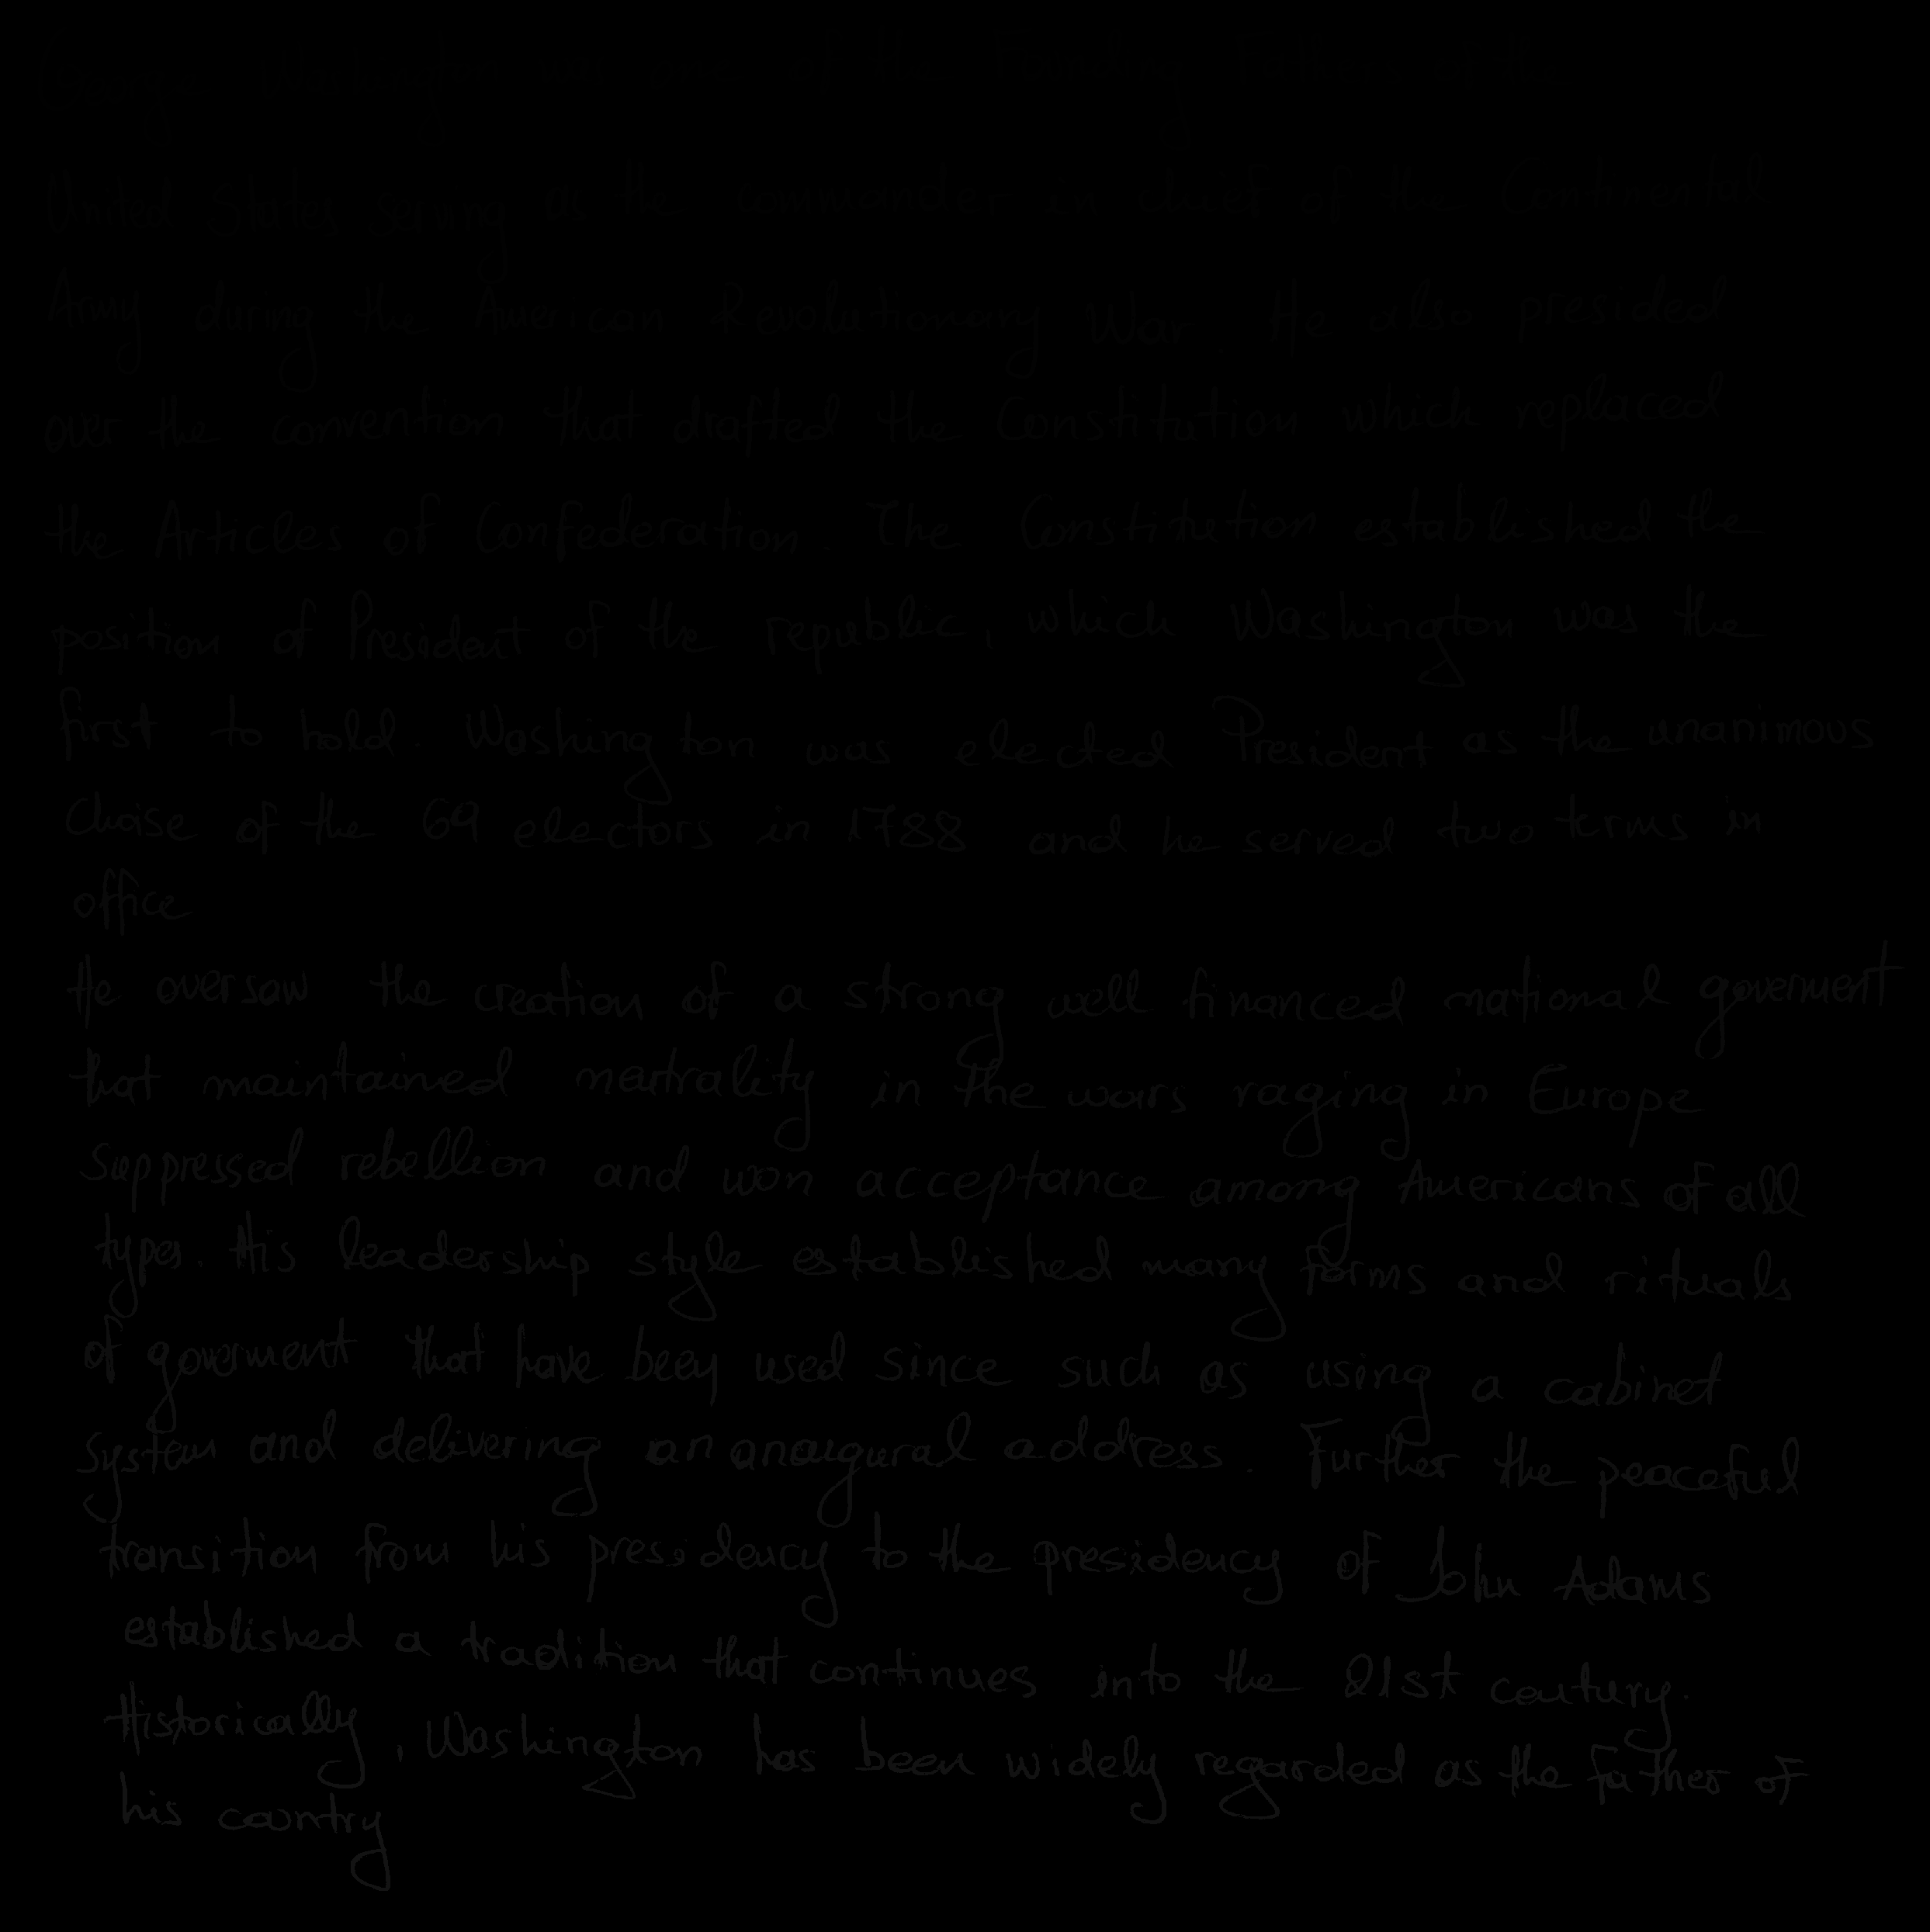 George Washington was one of the Founding Fathers of the
United States serving as the commander in chief of the Continental
Army during the American Revolutionary War. He also presided
over the convention that drafted the Constitution which replaced
the Articles of Confederation. The Constitution established the
position of President of the republic, which Washington was the
first to hold. Washington was elected President as the unanimous
choise of the 69 electors in 1788 and he served two terms in
office
He oversaw the creation of a strong well financed national goverment
that maintained neutrality in the wars raging in Europe
suppressed rebellion and won acceptance among Americans of all
types. His leadership style established many forms and rituals
of goverment that have been used since such as using a cabinet
system and delivering an anaugural address. Further the peaceful
transition from his presidency to the presidency of John Adams
established a tradition that continues into the 21st century.
Historically, Washington has been widely regarded as the father of
his country